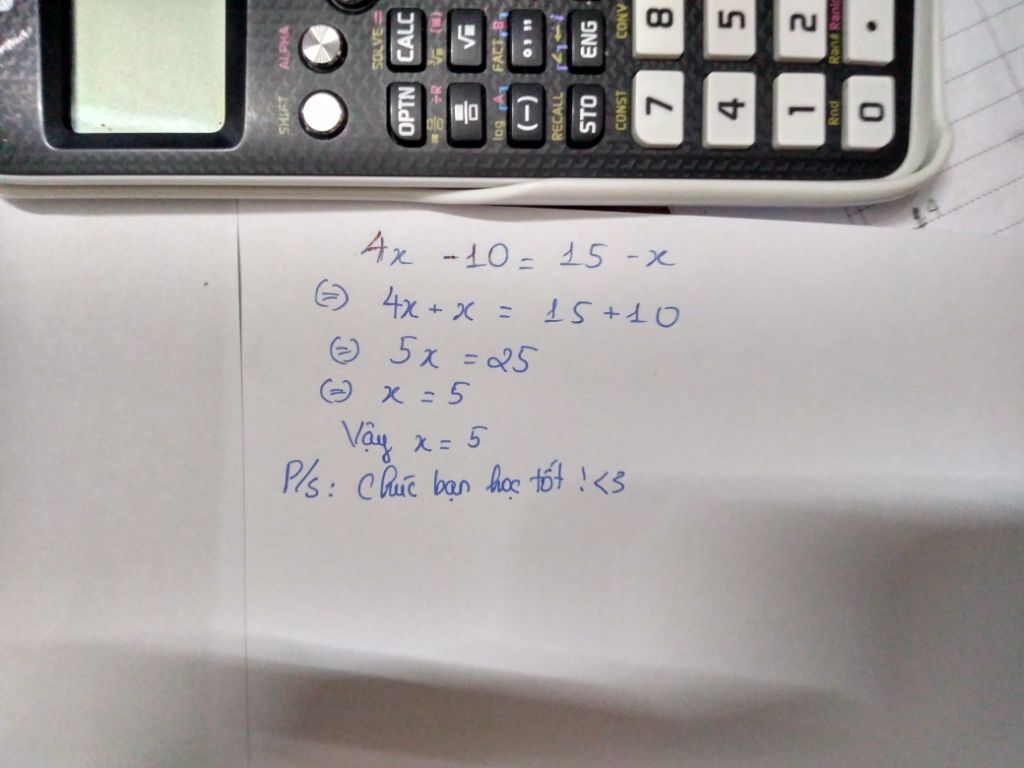 ALPHA
SOLVE =
CALC
√
FACT B
° ' "
ENG
CONV
8
5
2
Ran#
.
SHIFT
OPTN
÷R
log
A
(-)
RECALL
STO
CONST
7
4
1
Rnd
0
4x - 10 = 15 - x
(=) 4x + x = 15 + 10
(=) 5x = 25
(=) x = 5
Vậy x = 5
P/s: Chúc bạn học tốt ! <3